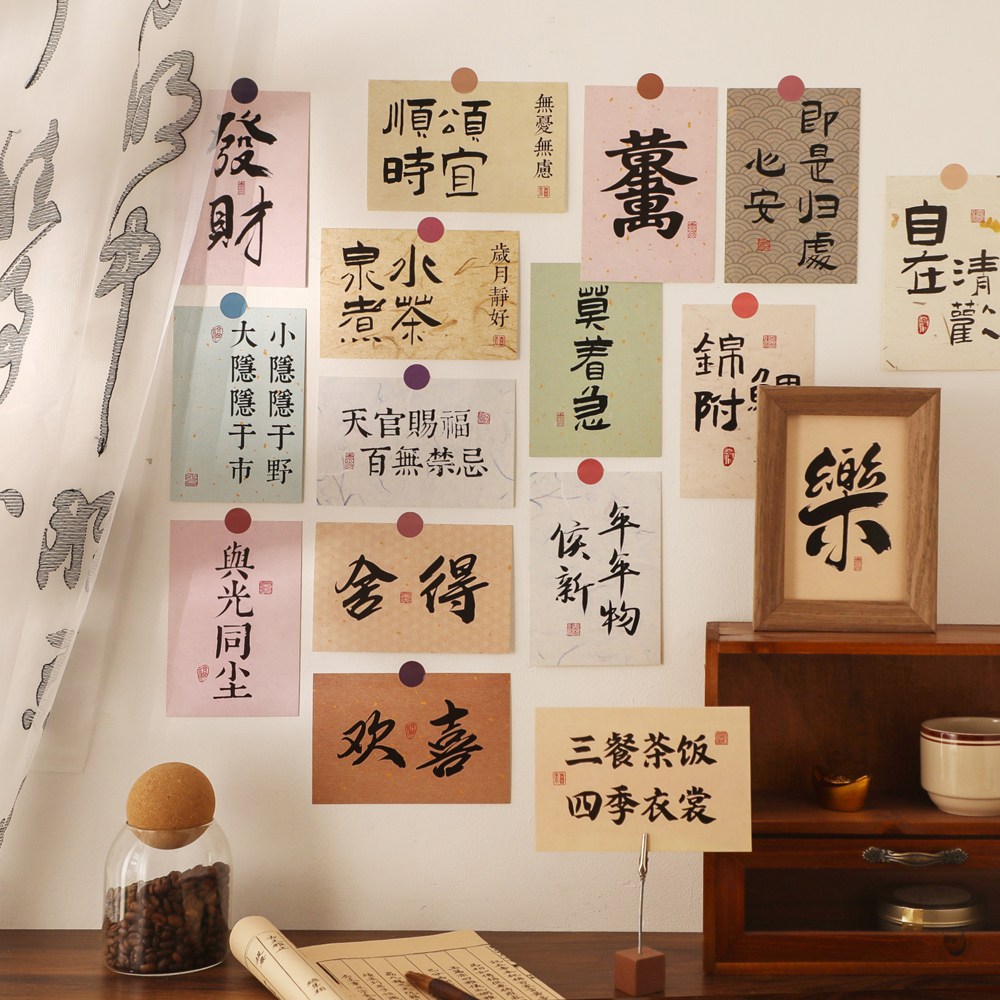 發財
順頌
時宜
無憂無慮
心安
即是归處
自在
清歡
泉水
煮茶
歲月靜好
莫着急
錦
附
小隱隱于野
大隱隱于市
天官賜福
百無禁忌
樂
與光同尘
舍得
年年物
候新
欢喜
三餐茶饭
四季衣裳